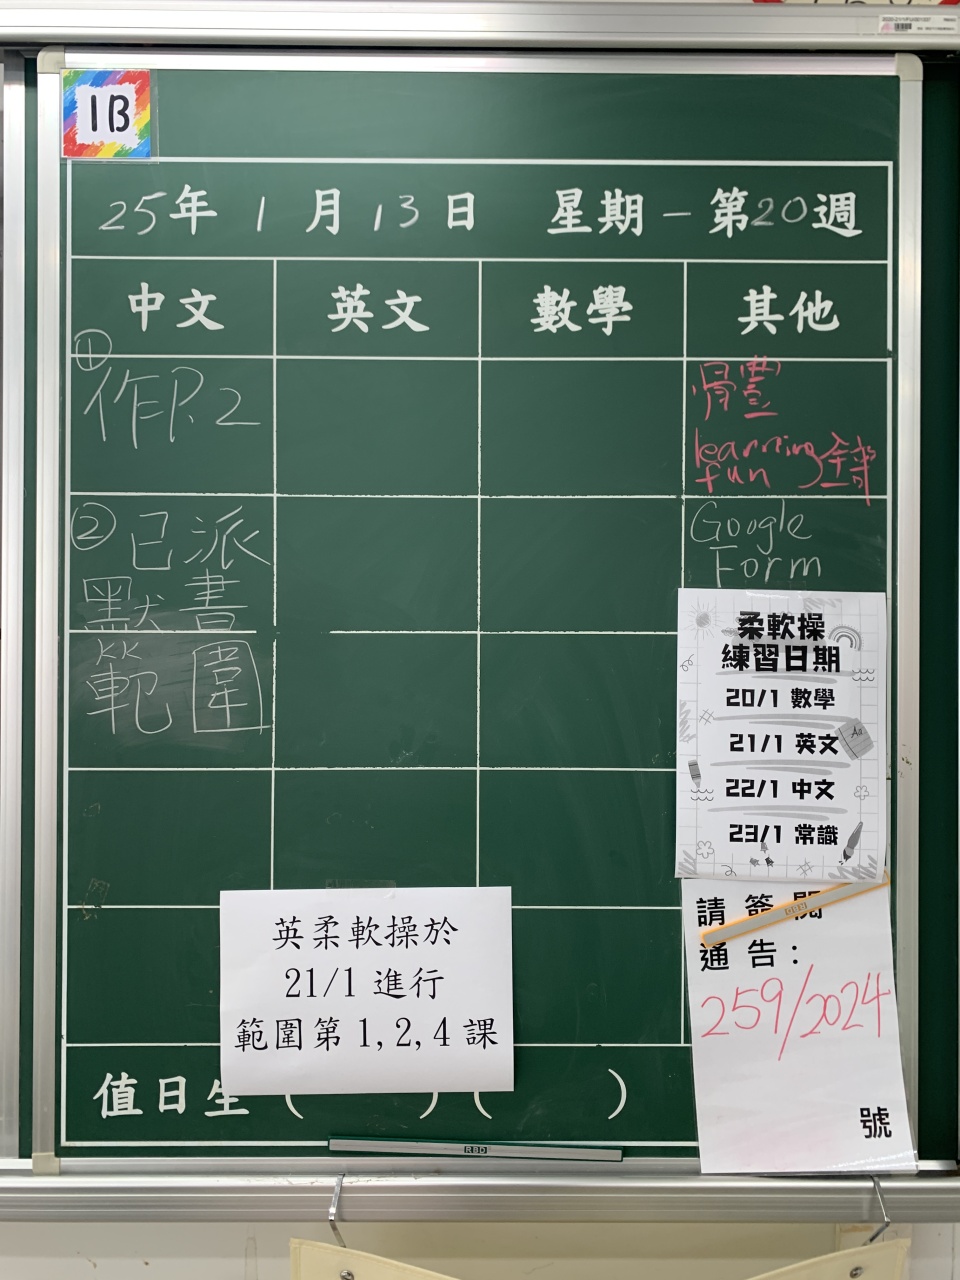 1B
25年 1 月 13日 星期一 第20週
中文 英文 數學 其他
①
作P.2
② 已派
默書
範圍
骨豐
learning
fun
Google
Form
柔軟操
練習日期
20/1 數學
21/1 英文
22/1 中文
23/1 常識
請簽閱
通告：
259/2024
號
英柔軟操於
21/1 進行
範圍第 1,2,4 課
值日生 ( ) ( )
RBD